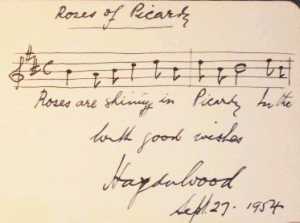 Roses of Picardy
Roses are shining in Picardy In the
With good wishes
Haydn Wood
Sept. 27. 1954